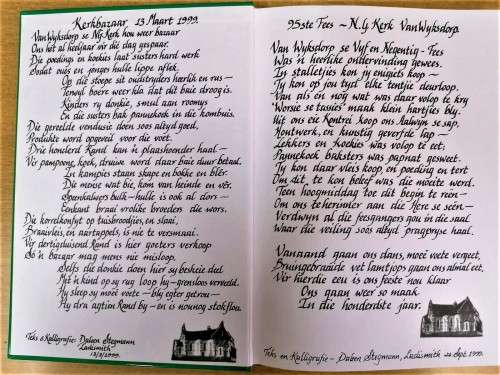 Kerkbazaar 13 Maart 1999.
Van Wyksdorp se N.G. Kerk hou weer bazaar
Ons het al heeljaar vir die dag gespaar.
Die poedings en koekies laat susters hard werk
Sodat oues en jonges hulle lippe aflek.
Op die stoepe sit oudstryders heerlik en rus—
Terwyl boere weer kla dat dit baie droog is.
Kinders ry donkie, smul aan roomys
En die susters bak pannekoek in die kombuis.
Die gereelde vendusie doen soos altyd goed,
Produkte word opgeveil voor die voet.
Drie honderd Rand kan 'n plaashoender haal—
Vir pampoene, koek, druiwe word daar baie duur betaal.
In kampies staan skape en bokke en blêr.
Die mense wat bie, kom van heinde en vêr.
Spoenkalwers bulk—hulle is ook al dors—
Eenkant braai vrolike broeders die wors.
Die kerrelkomfyt op tuisbroodjies, en slaai,
Braaivleis, en aartappels, is nie te versmaai.
Vir dertigduisend Rand is hier goeters verkoop
So 'n bazar mag mens nie misloop.
Selfs die donkie doen hier sy beskeie deel
Met 'n kind op sy rug loop hy—grensloos verveeld.
Hy sleep sy moeë voete—bly egter getrou—
Hy dra agtien Rand by—en is nounog stokflou.
Teks & Kalligrafie: Daleen Stegmann
Ladismith
13/3/1999.
95ste Fees ~ N.G. Kerk Van Wyksdorp.
Van Wyksdorp se Vyf en Negentig-Fees
Was 'n heerlike ondervinding gewees.
In stalletjies kon jy enigiets koop—
Jy kon op jou tyd elke tentjie deurloop.
Van als en nog wat was daar volop te kry
'Worsie se tasies' maak klein hartjies bly.
Uit ons eie Kontrei koop ons Aalwyn se sap,
Houtwerk, en kunstig geverfde lap—
Lekkers en Koekies was volop te eet;
Pannekoek baksters was papnat gesweet.
Jy kon daar vleis koop en poeding en tert
Om dit te kon beleef was die moeite werd.
Teen hoogmiddag toe dit begin te reën—
Om ons te herinner aan die Here se seën—
Verdwyn al die feesgangers gou in die saal
Waar die veiling soos altyd pragpryse haal.
Vanaand gaan ons dans, moeë voete vergeet,
Bruingebraaide vet lamtjops gaan ons almal eet.
Vir hierdie eeu is ons feeste nou klaar
Ons gaan weer so maak
In die honderdste jaar.
Teks en Kalligrafie - Daleen Stegmann, Ladismith 24 Sept. 1999.